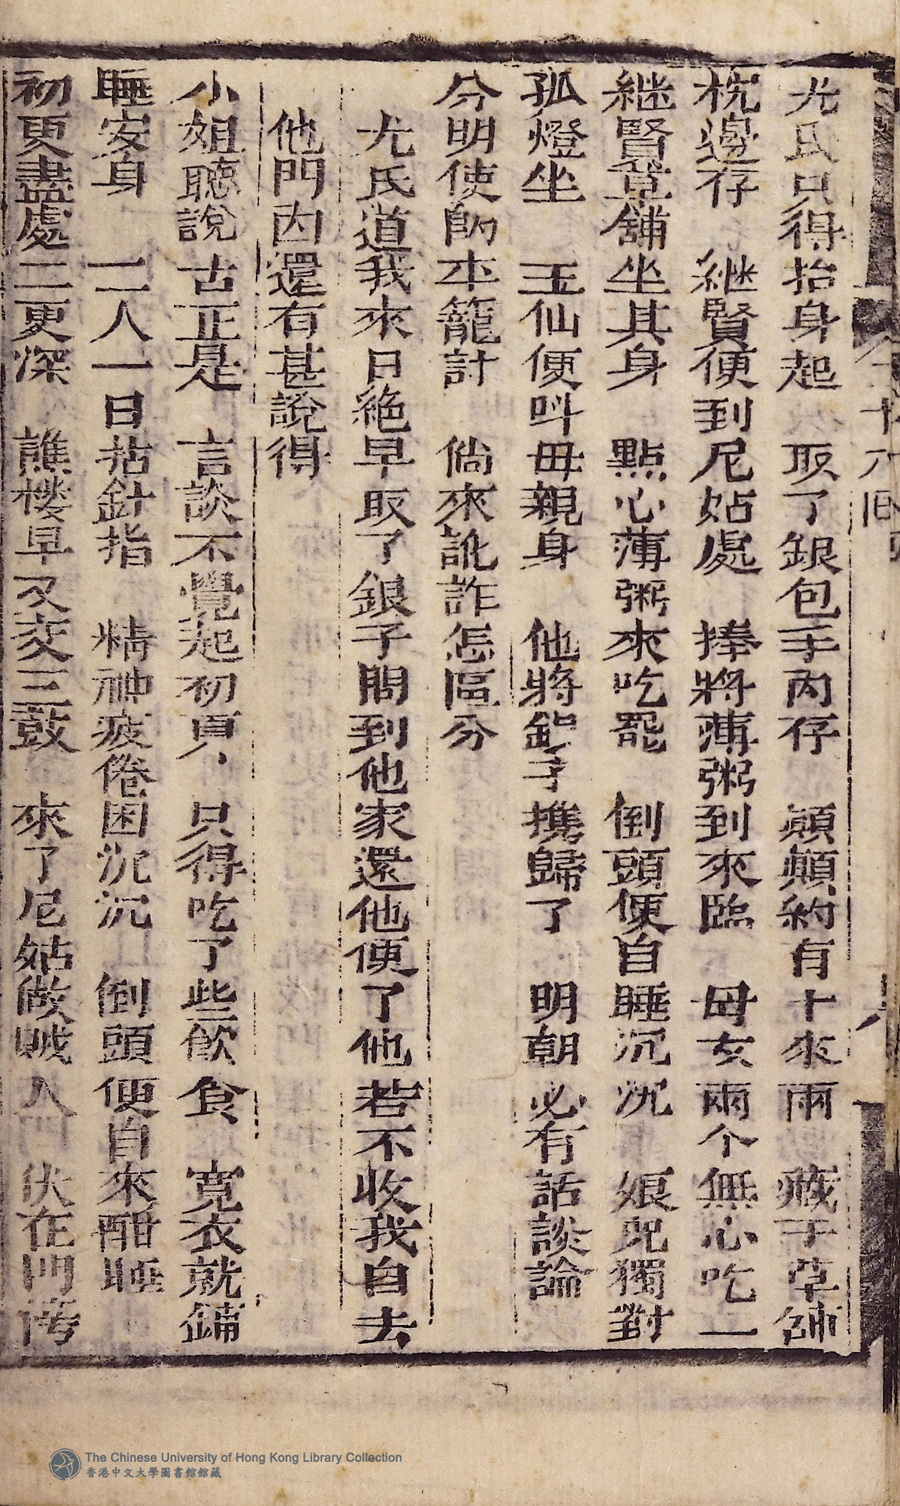 尤氏只得抬身起　取了銀包手內存　顛顛約有十來兩　藏于草舖
枕邊存　継賢便到尼姑處　捧將薄粥到來臨　母女兩个無心吃　一
継賢草舖坐其身　點心薄粥來吃罷　倒頭便自睡沉沉　娘兒獨對
孤燈坐　玉仙便呌母親身　他將銀子攜歸了　明朝必有話談論
分明使的牢籠計　倘來訛詐怎區分
尤氏道我來日絶早取了銀子問到他家還他便了他若不收我自去
他門因還有甚說得
小姐聽說古正是　言談不覺起初更　只得吃了些飲食　寬衣就鋪
睡安身　一二人一日拈針指　精神疲倦困沉沉　倒頭便自來酣睡
初更盡處二更深　譙楼早又交三鼓　來了尼姑做賊人　伏在門傍
The Chinese University of Hong Kong Library Collection
香港中文大學圖書館館藏